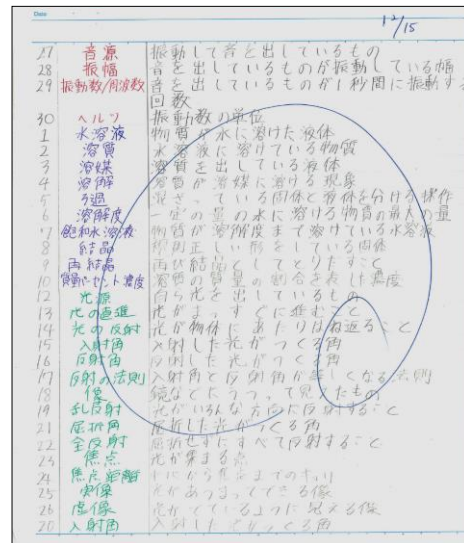 Date
12/15
27 音源 振動して音を出しているもの
28 振幅 音を出しているものが振動している幅
29 振動数/周波数 音を出しているものが1秒間に振動する
回数
30 ヘルツ 振動数の単位
1 水溶液 物質が水に溶けた液体
2 溶質 水溶液に溶けている物質
3 溶媒 溶質を出している液体
4 溶解 溶質が溶媒に溶ける現象
5 ろ過 混ざっている固体と液体を分ける操作
6 溶解度 一定の量の水に溶ける物質の最大の量
7 飽和水溶液 物質が溶解度まで溶けている水溶液
8 結晶 規則正しい形をしている固体
9 再結晶 再び結晶としてとりだすこと
10 質量パーセント濃度 溶質の質量の割合を表した濃度
12 光源 自ら光を出しているもの
13 光の直進 光がまっすぐに進むこと
14 光の反射 光が物体にあたりはね返ること
15 入射角 入射した光がつくる角
16 反射角 反射した光がつくる角
17 反射の法則 入射角と反射角が等しくなる法則
18 像 鏡などにうつって見えたもの
19 乱反射 光がいろんな方向に反射すること
21 屈折角 屈折した光がつくる角
22 全反射 屈折せずにすべて反射すること
23 焦点 光が集まる点
24 焦点距離 から焦点までのきょり
25 実像 光があつまってできる像
26 虚像 光がでているように見える像
20 入射角 入射した光がつくる角